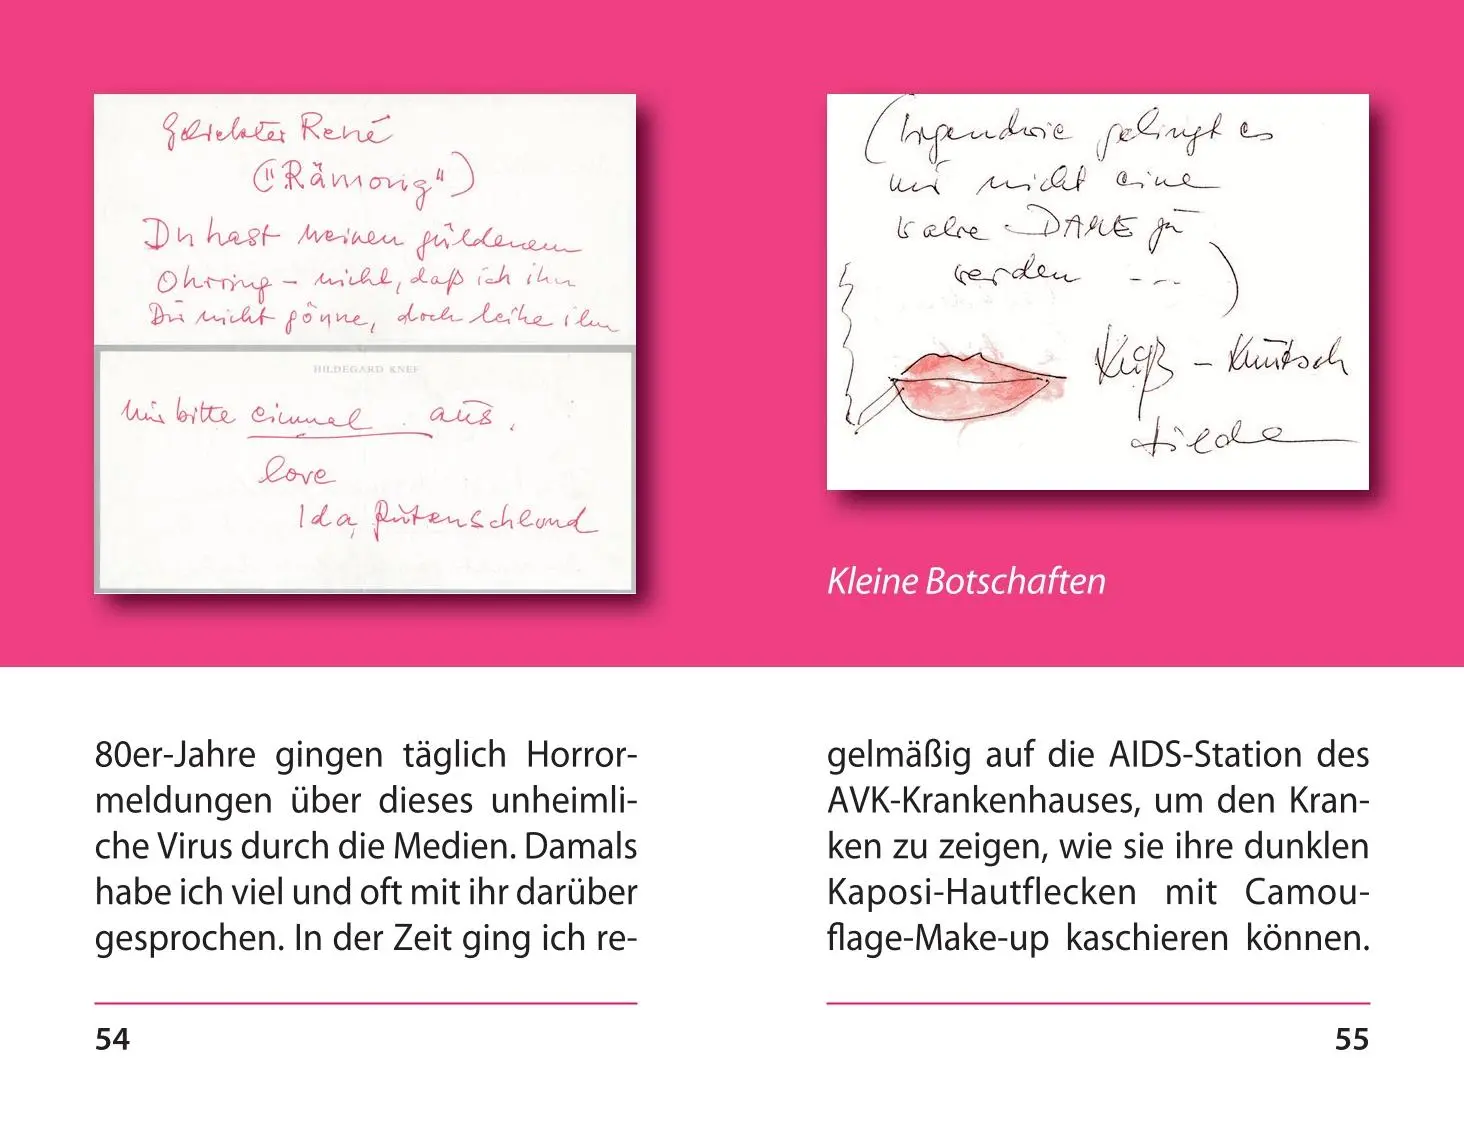 Geliebter René
("Rämong")
Du hast meinen güldenen
Ohrring – nicht, daß ich ihn
Dir nicht gönne, doch leihe ihn
HILDEGARD KNEF
mir bitte einmal aus.
love
Ida
(Irgendwie gelingt es
mir nicht eine
wahre DAME zu
werden ---)
Kuß – Knutsch
80er-Jahre gingen täglich Horror-
meldungen über dieses unheimli-
che Virus durch die Medien. Damals
habe ich viel und oft mit ihr darüber
gesprochen. In der Zeit ging ich re-
54
Kleine Botschaften
gelmäßig auf die AIDS-Station des
AVK-Krankenhauses, um den Kran-
ken zu zeigen, wie sie ihre dunklen
Kaposi-Hautflecken mit Camou-
flage-Make-up kaschieren können.
55